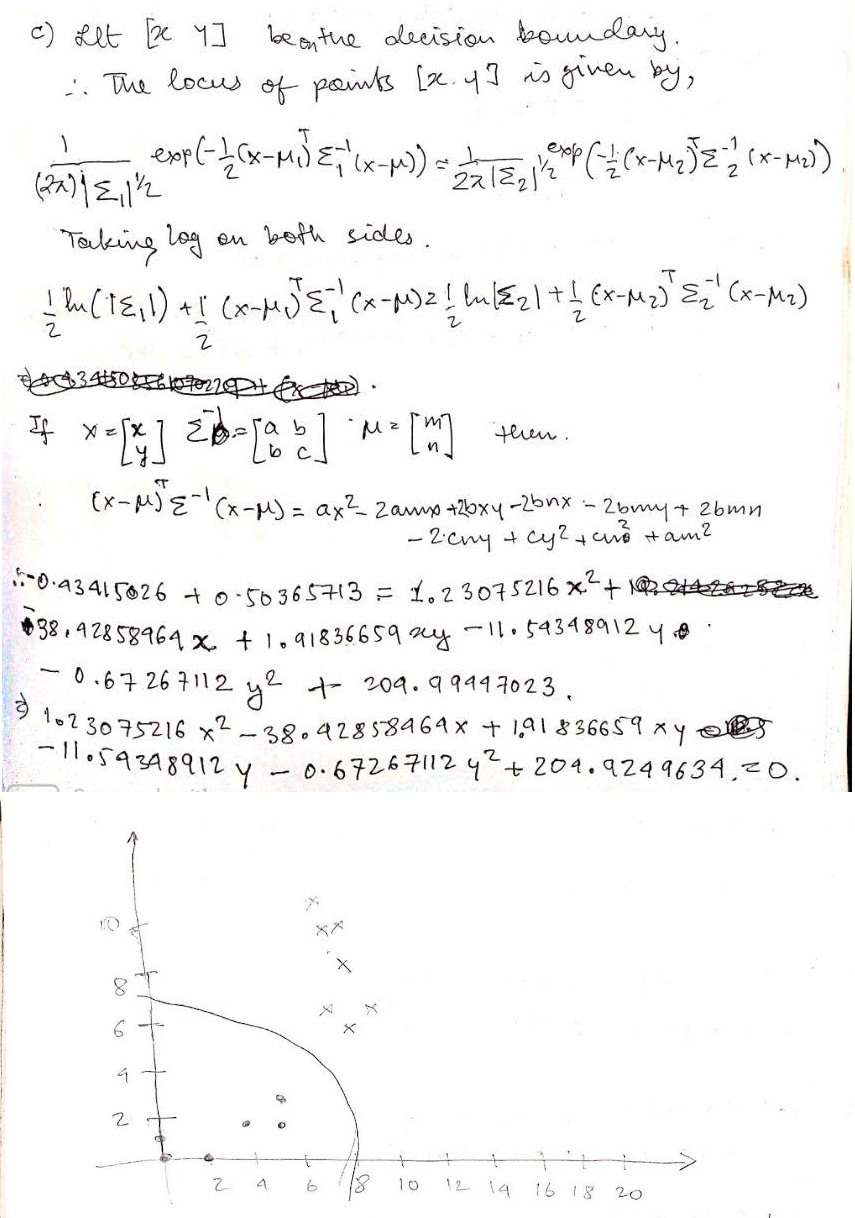 c) Let [x y] be on the decision boundary.
∴ The locus of points [x y] is given by,
1/((2π)|Σ₁|^½) exp(-½(x-μ₁)ᵀΣ₁⁻¹(x-μ)) = 1/(2π|Σ₂|^½) exp(-½(x-μ₂)ᵀΣ₂⁻¹(x-μ₂)).
Taking log on both sides.
½ ln(|Σ₁|) + ½ (x-μ₁)ᵀΣ₁⁻¹(x-μ) = ½ ln|Σ₂| + ½ (x-μ₂)ᵀ Σ₂⁻¹ (x-μ₂)
If x = [x y] Σ⁻¹ = [a b b c] μ = [m n] then.
(x-μ)ᵀΣ⁻¹(x-μ) = ax² - 2amx + 2bxy - 2bnx - 2bmy + 2bmn
- 2cny + cy² + cn² + am²
∴ -0.43415026 + 0.50365713 = 1.23075216 x² +
-38.42858464 x + 1.91836659 xy - 11.54348912 y
- 0.67267112 y² + 204.99447023.
⇒ 1.23075216 x² - 38.42858464x + 1.91836659 xy
-11.54348912 y - 0.67267112 y² + 204.9249634 = 0.
10
8
6
4
2
2 4 6 8 10 12 14 16 18 20